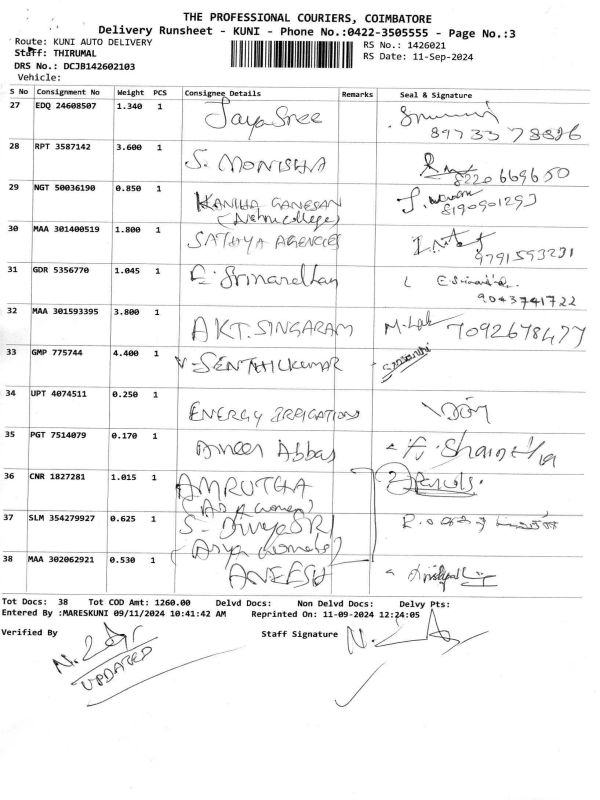 THE PROFESSIONAL COURIERS, COIMBATORE
Delivery Runsheet - KUNI - Phone No.:0422-3505555 - Page No.:3
Route: KUNI AUTO DELIVERY
RS No.: 1426021
Staff: THIRUMAL
RS Date: 11-Sep-2024
DRS No.: DCJB142602103
Vehicle:
S No Consignment No Weight PCS Consignee Details Remarks Seal & Signature
27 EDQ 24608507 1.340 1 Jaya Sree
28 RPT 3587142 3.600 1 S. MONISHA
8220669650
29 NGT 50036190 0.850 1 KANIHA GANESAN
(Nehru college)
8190901293
30 MAA 301400519 1.800 1 SATHYA AGENCIES
9791593231
31 GDR 5356770 1.045 1 E. Srinaredhan
9043741722
32 MAA 301593395 3.800 1 AKT. SINGARAM M. Lak 7092678477
33 GMP 775744 4.400 1 V. SENTHILKUMAR
34 UPT 4074511 0.250 1 ENERGY IRRIGATIONS
35 PGT 7514079 0.170 1 Ameer Abbas
36 CNR 1827281 1.015 1 AMRUTHA 2 Parcels.
37 SLM 354279927 0.625 1 S. Divya SRI
38 MAA 302062921 0.530 1 ANEESH
Tot Docs: 38 Tot COD Amt: 1260.00 Delvd Docs: Non Delvd Docs: Delvy Pts:
Entered By :MARESKUNI 09/11/2024 10:41:42 AM Reprinted On: 11-09-2024 12:24:05
Verified By Staff Signature
UPDATED